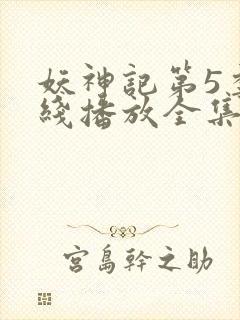 妖神記第5季
綫播放全集
宮島幹之助